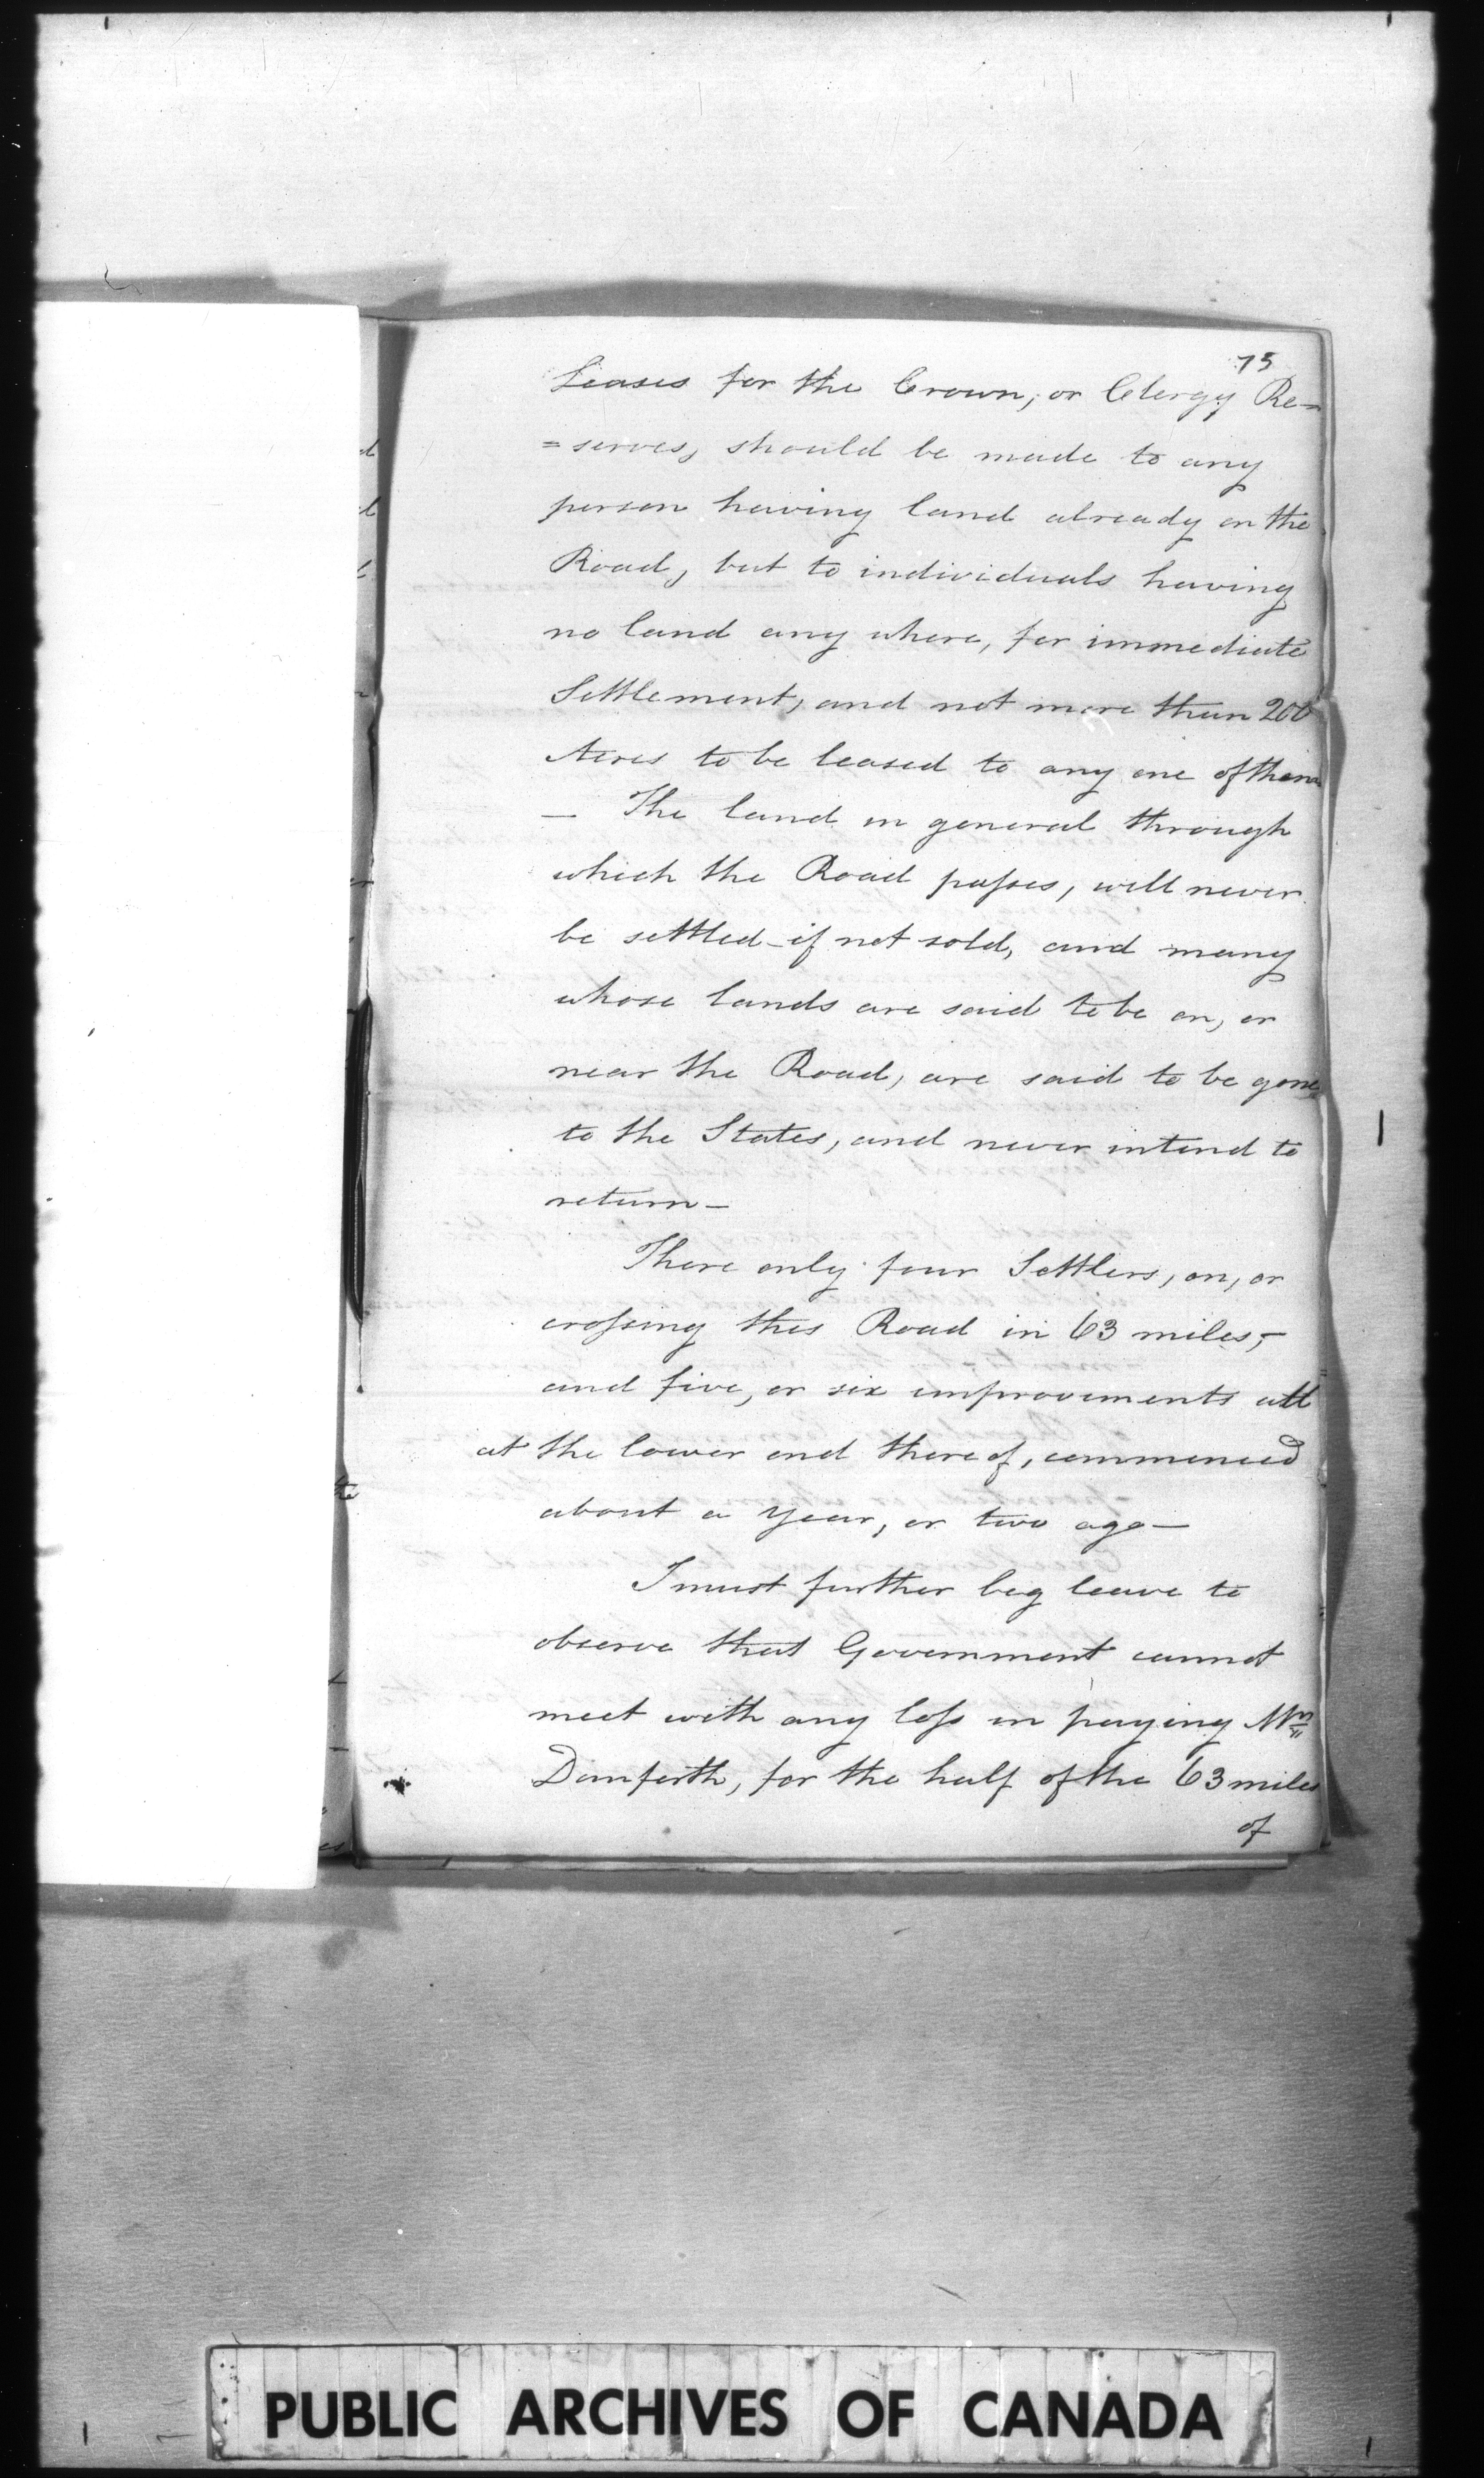 75
Leases for the Crown, or Clergy Re=
=serves, should be made to any
person having land already on the
Road, but to individuals having
no land any where, for immediate
Settlement, and not more than 200
Acres to be leased to any one of them
— The land in general through
which the Road passes, will never
be settled - if not sold, and many
whose lands are said to be on, or
near the Road, are said to be gone
to the States, and never intend to
return —
There only four Settlers, on, or
crossing this Road in 63 miles, -
and five, or six improvements all
at the lower end thereof, commenced
about a Year, or two ago —
I must further beg leave to
observe that Government cannot
meet with any loss in paying Mr
Danforth, for the half of the 63 miles
of
PUBLIC ARCHIVES OF CANADA